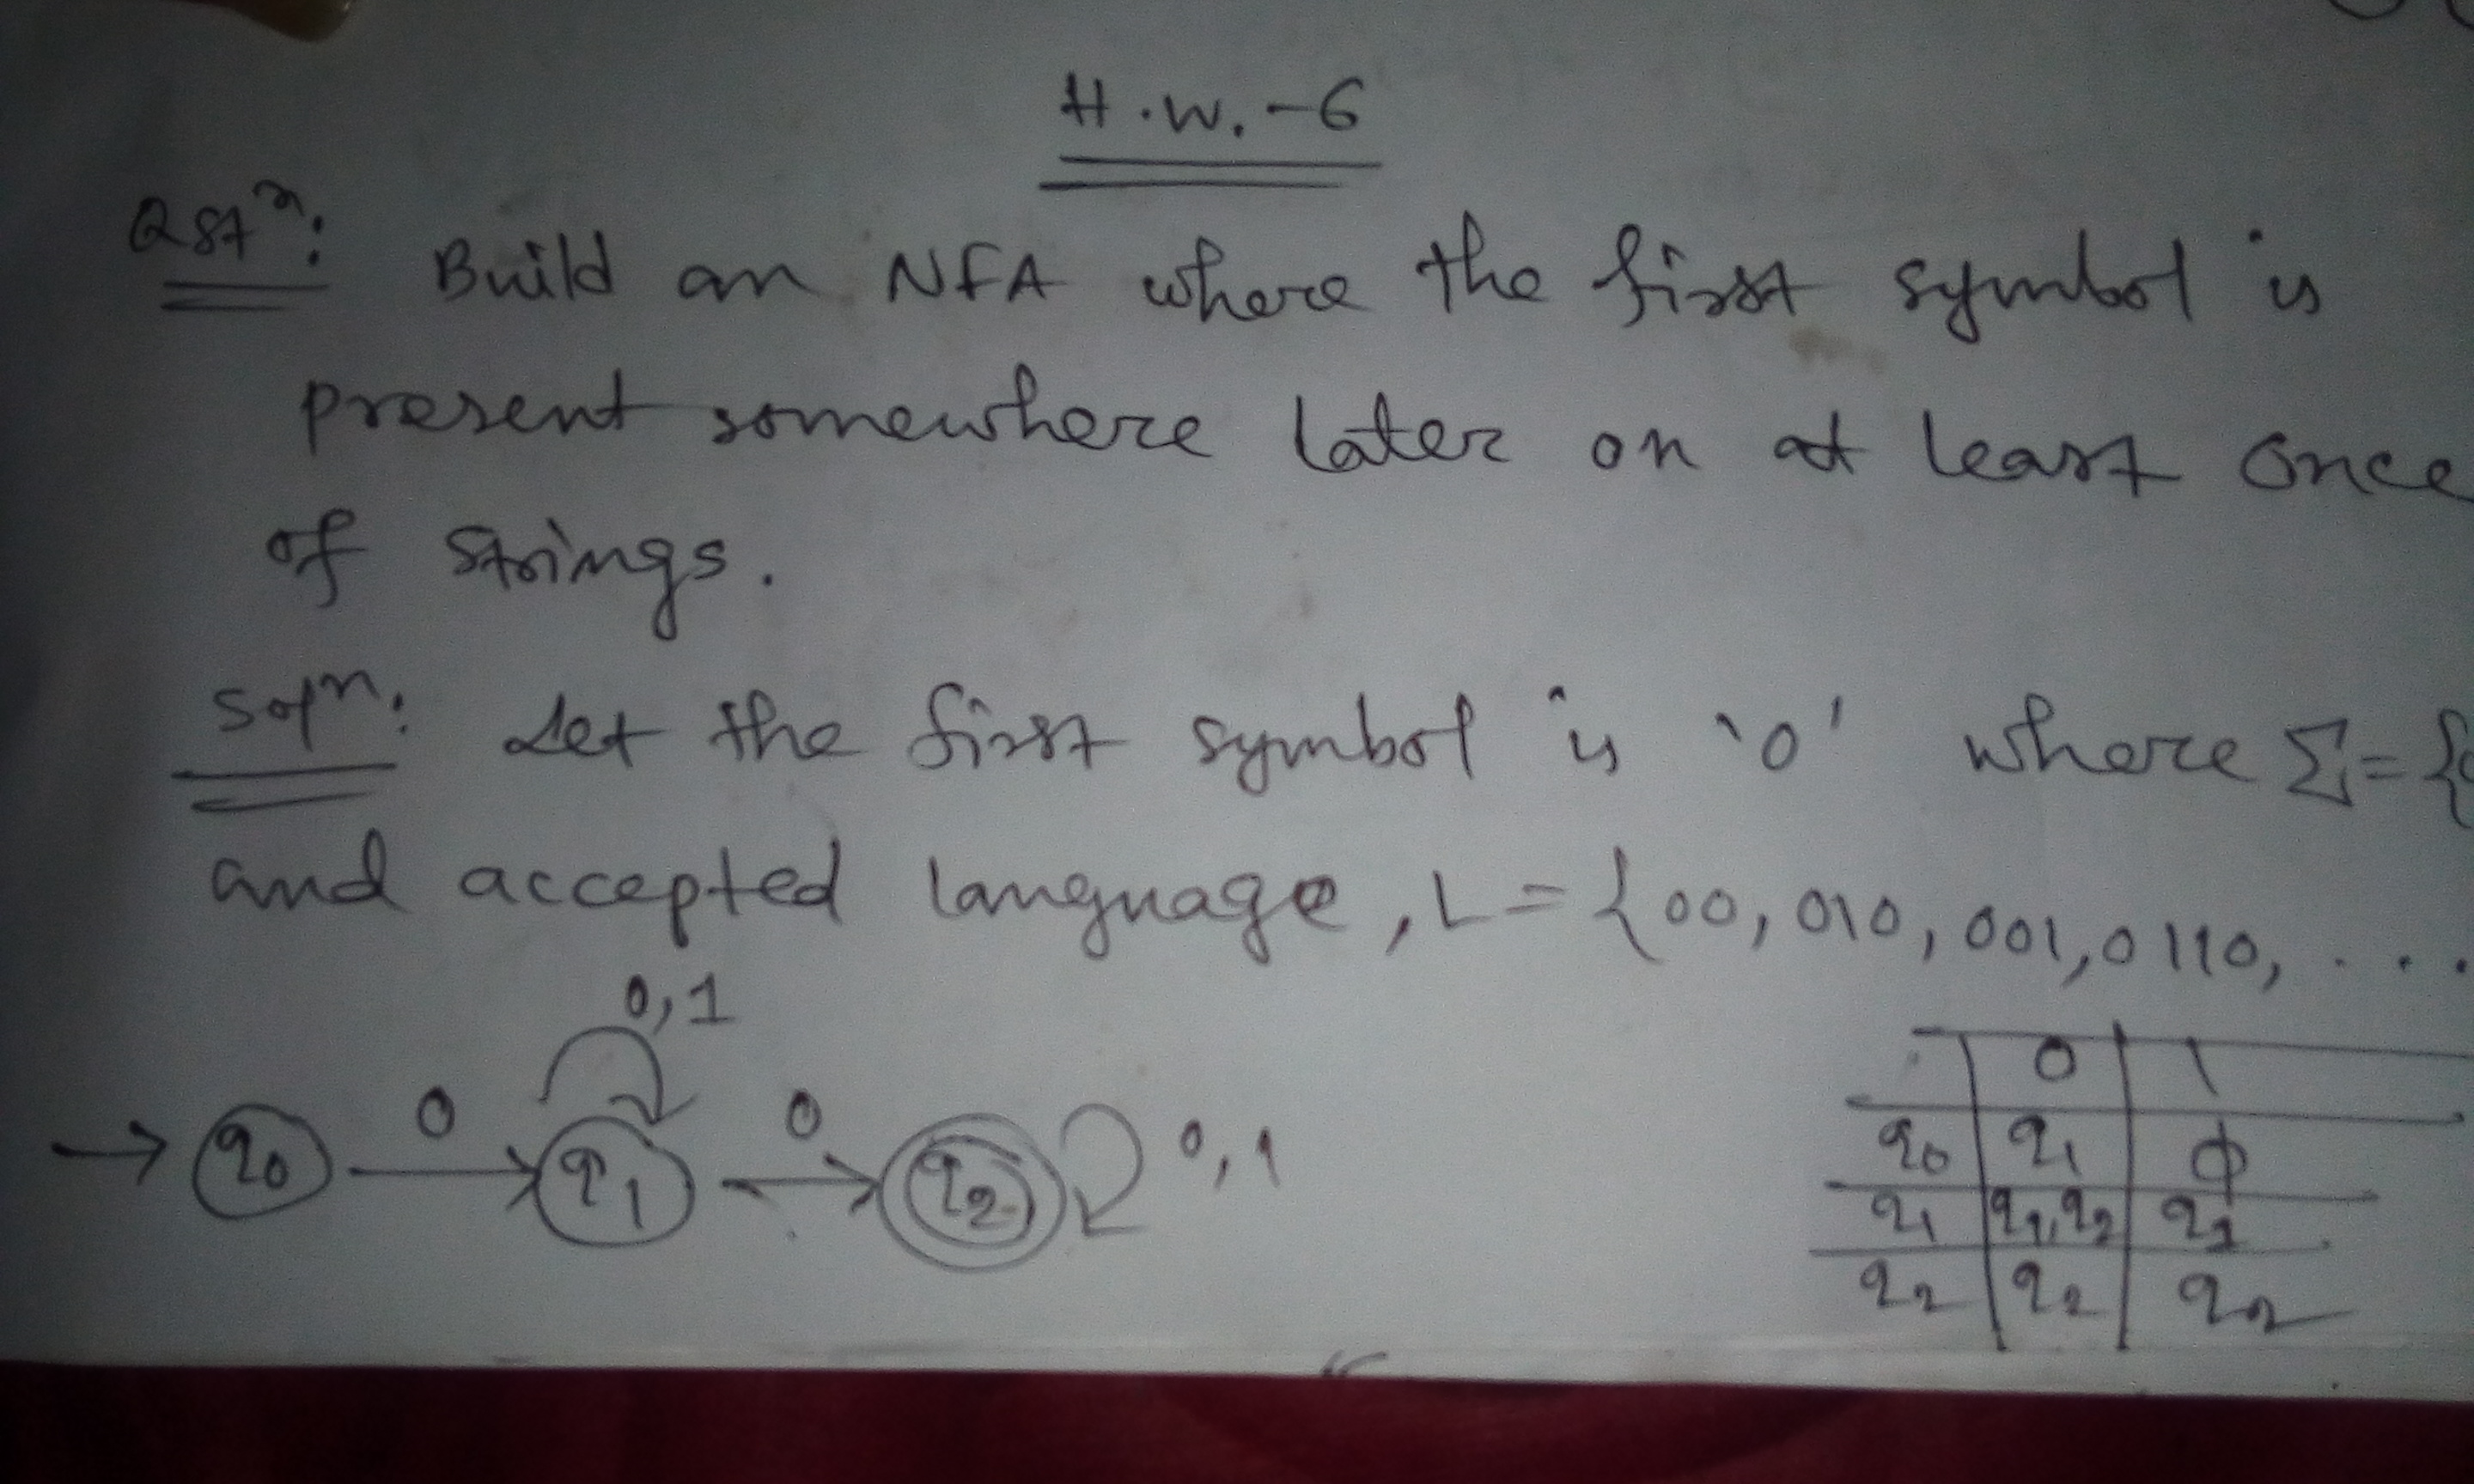 H.W.-6
Qstn: Build an NFA where the first symbol is
present somewhere later on at least once
of strings.
Soln: Let the first symbol is '0' where Σ={0
and accepted language, L={00, 010, 001, 0110, ...
0,1
0 0 0,1
→ q0 q1 q2
0 1
q0 q1 φ
q1 q1,q2 q1
q2 q2 q2